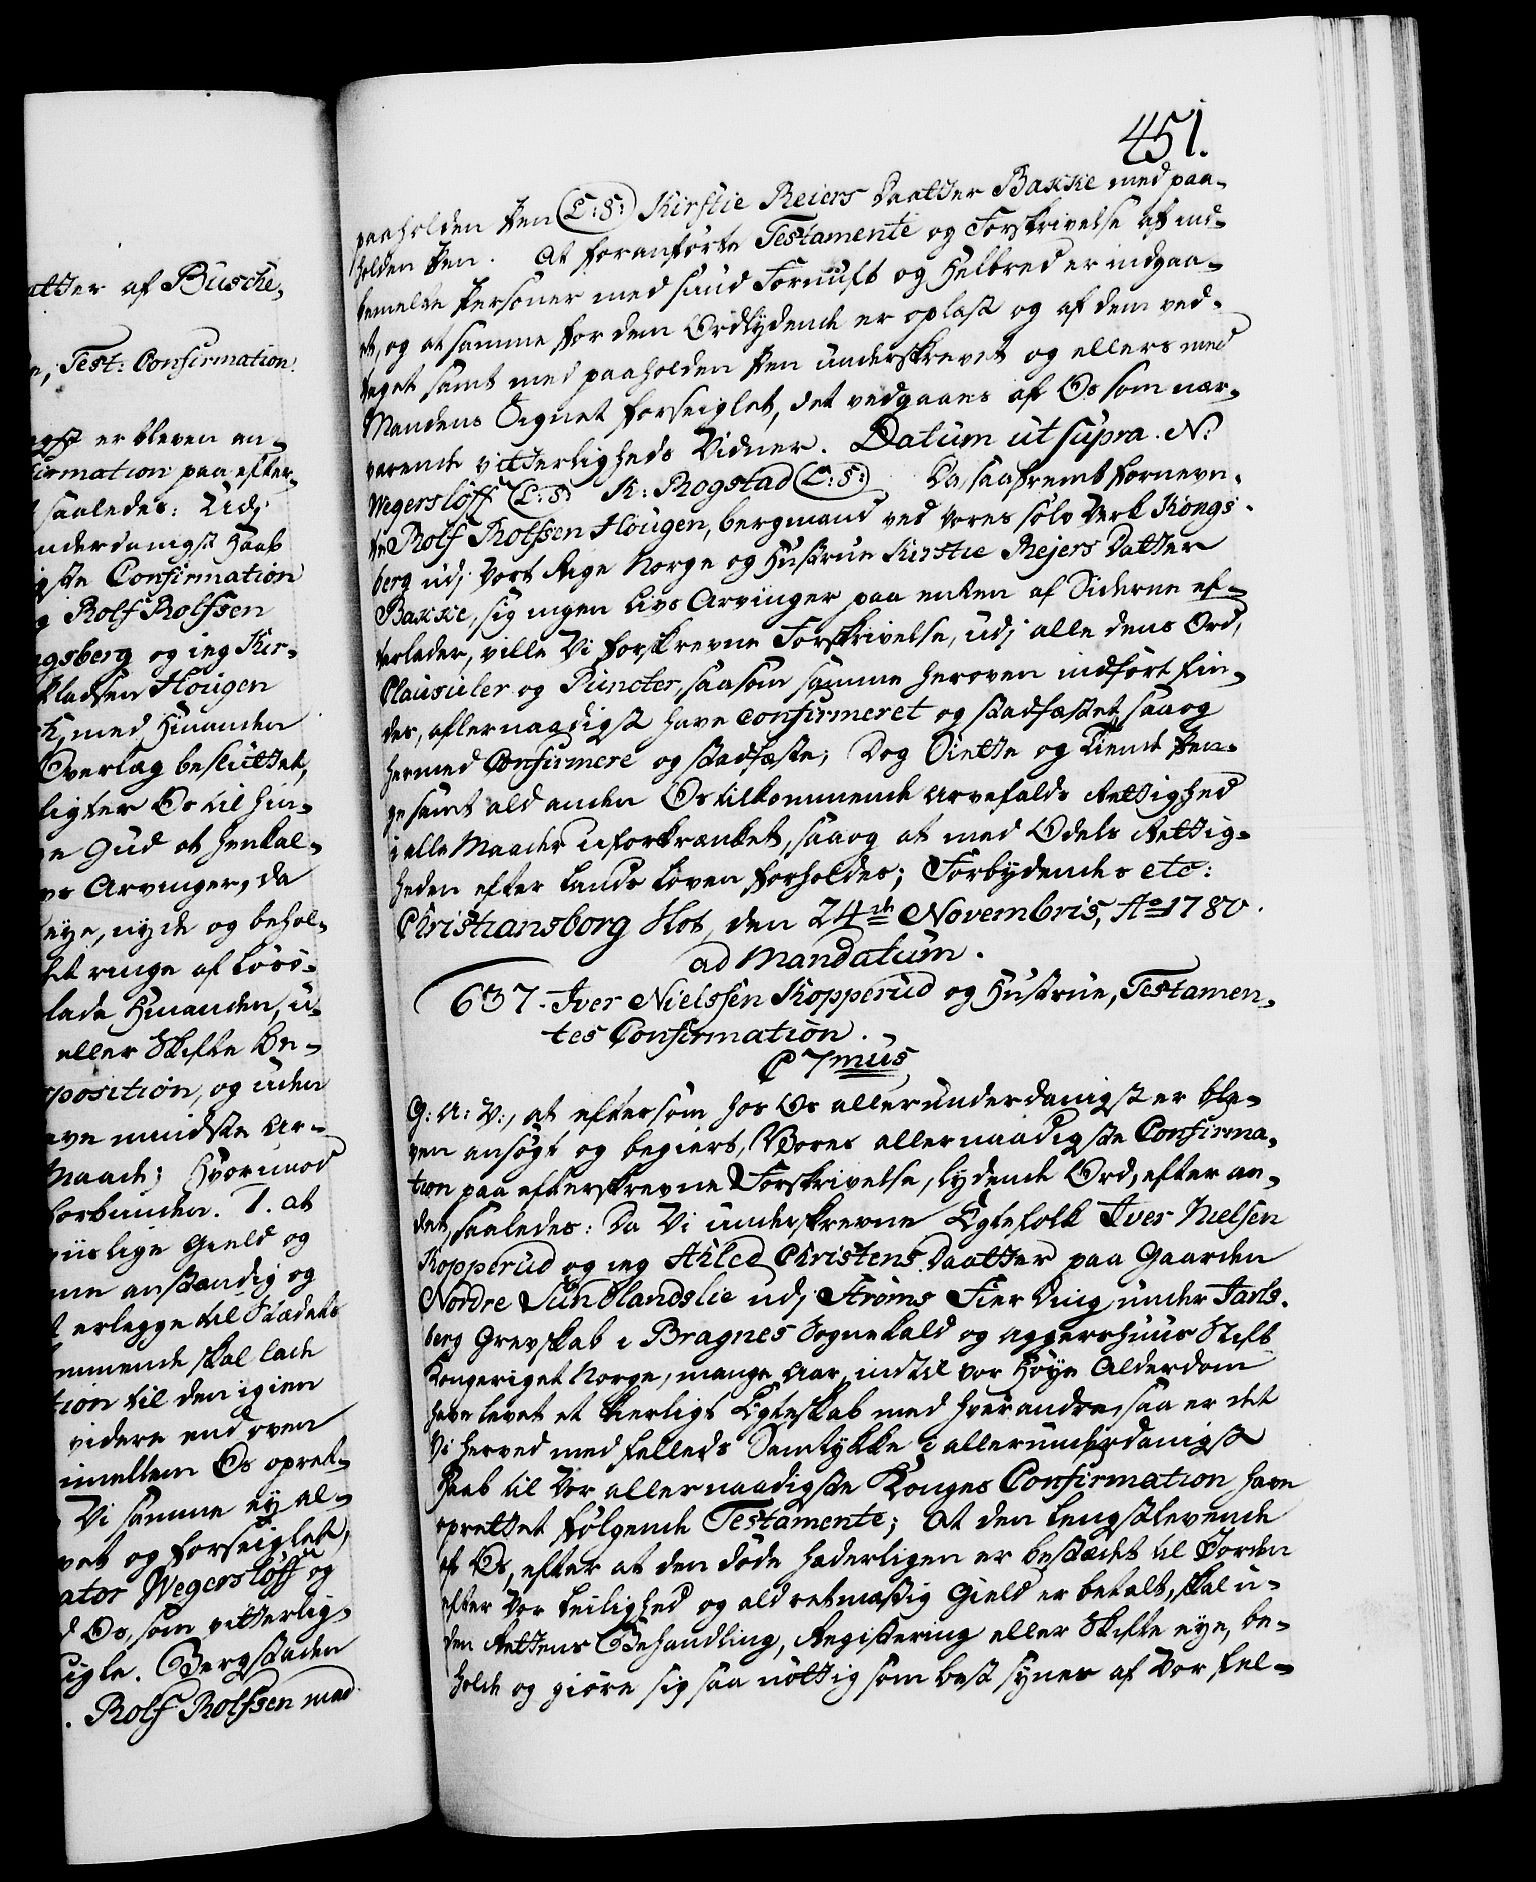 atter af Büsche,
Test: Confirmation.
er bleven an-
firmation paa efter-
saaledes: Udj
underdanigst Haab
gste Confirmation
Rolf Rolfsen
ngsberg og ieg Kir-
Pladsen Hougen
med Hinanden
Overlag besluttet,
ligter Os til hin-
Gud at henkal-
vs Arvinger, da
eye, nyde og behol-
det ringe af Løøs-
lade Hinanden, u-
eller Skifte Be-
position, og uden
ave mindste Ar-
Maade; Hvorimod
forbunden. 1. at
viislige Gield og
anstændig og
erlegge til Stædets
kommende skal lade
tion til den igien
videre end oven
imellem Os opret-
Vi samme ey al-
vet og forseiglet,
ator Wegersløff og
Os, som vitterlig-
Bergstaden
Rolf Rolfsen med
451.
paaholden Pen (L:S:) Kirstie Reiers Daatter Bakke med paa-
holden Pen. At foranførte Testamente og Forskrivelse af end-
bemelte Personer med sund Fornuft og Helbred er indgaa-
et, og at samme for dem Ordlydende er oplæst og af dem ved-
taget samt med paaholden Pen underskrevet og ellers med
Mandens Signet forseiglet, det vedgaaes af Os som nær-
værende vitterligheds Vidner. Datum ut supra. N:
Wegersløff (L:S:) K: Rogstad (L:S:) Da, saafremt fornevn-
te Rolf Rolfsen Hougen, bergmand ved vores sølv Verk Kongs-
berg udj vort Rige Norge og Hustrue Kirstie Rejers Datter
Bakke, sig ingen Livs Arvinger paa enten af Siderne ef-
terlader, ville Vi forskrevne Forskrivelse, udj alle dens Ord,
Clausuler og Puncter, saasom samme heroven indført fin-
des, allernaadigst have confirmeret og stadfæstet, saa og
hermed Confirmere og stadfæste; Dog Siette og Tiende Pen-
ge samt ald anden Os tilkommende Arvefalds Rettighed
i alle Maader uforkrænket, saa og at med Odels Rettig-
heden efter Lands Loven forholdes; Forbydendes etc:
Christiansborg Slot, den 24de Novembris, Ao 1780.
ad Mandatum.
637. Iver Nielssen Kopperud og Hustrue, Testamen-
tes Confirmation.
C 7mus
G: A: V:, at eftersom hos Os allerunderdanigst er ble-
ven ansøgt og begiert, Vores allernaadigste Confirma-
tion paa efterskrevne Forskrivelse, lydende Ord, efter an-
det, saaledes: Da Vi underskrevne Egtefolk Iver Nielsen
Kopperud og ieg Christens Daatter paa Gaarden
Nordre Sundlandslie udj Strøms Fierding under Jarls-
berg Grevskab i Bragnes Sognekald og Aggershuus Stift
Kongeriget Norge, mange Aar, indtil vor høye Alderdom
have levet et kierligt Egteskab med hverandre, saa er det
Vi herved med felleds Samtykke i allerunderdanigst
Haab til Vor allernaadigste Konges Confirmation have
oprettet følgende Testamente; At den lengstlevende
af Os, efter at den døde hæderligen er bestædet til Jorden
efter Vor Leilighed og ald retmæssig Gield er betalt, skal u-
den Rettens Behandling, Registering eller Skifte eye, be-
holde og giøre sig saa nøttig som best synes af Vor fel-